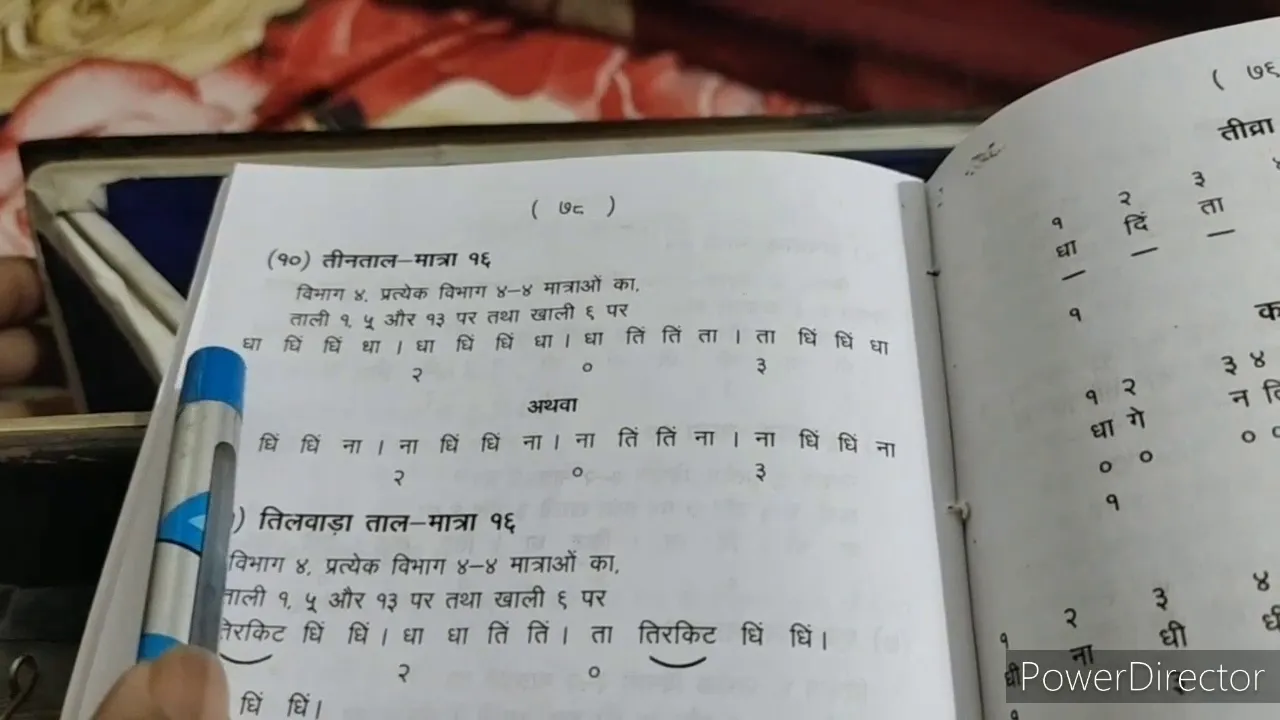 ( ७८ )
(१०) तीनताल–मात्रा १६
विभाग ४, प्रत्येक विभाग ४–४ मात्राओं का,
ताली १, ५ और १३ पर तथा खाली ६ पर
धा धिं धिं धा । धा धिं धिं धा । धा तिं तिं ता । ता धिं धिं धा
२ ० ३
अथवा
धिं धिं ना । ना धिं धिं ना । ना तिं तिं ना । ना धिं धिं ना
२ ० ३
) तिलवाड़ा ताल–मात्रा १६
विभाग ४, प्रत्येक विभाग ४–४ मात्राओं का,
ताली १, ५ और १३ पर तथा खाली ६ पर
तिरकिट धिं धिं । धा धा तिं तिं । ता तिरकिट धिं धिं ।
२ ०
धिं धिं ।
( ७६
तीव्रा
१ २ ३ ४
धा दिं ता
१
१ २ ३ ४
धा गे न
० ० ०
१
१ २ ३ ४
धी ना धी
१
PowerDirector